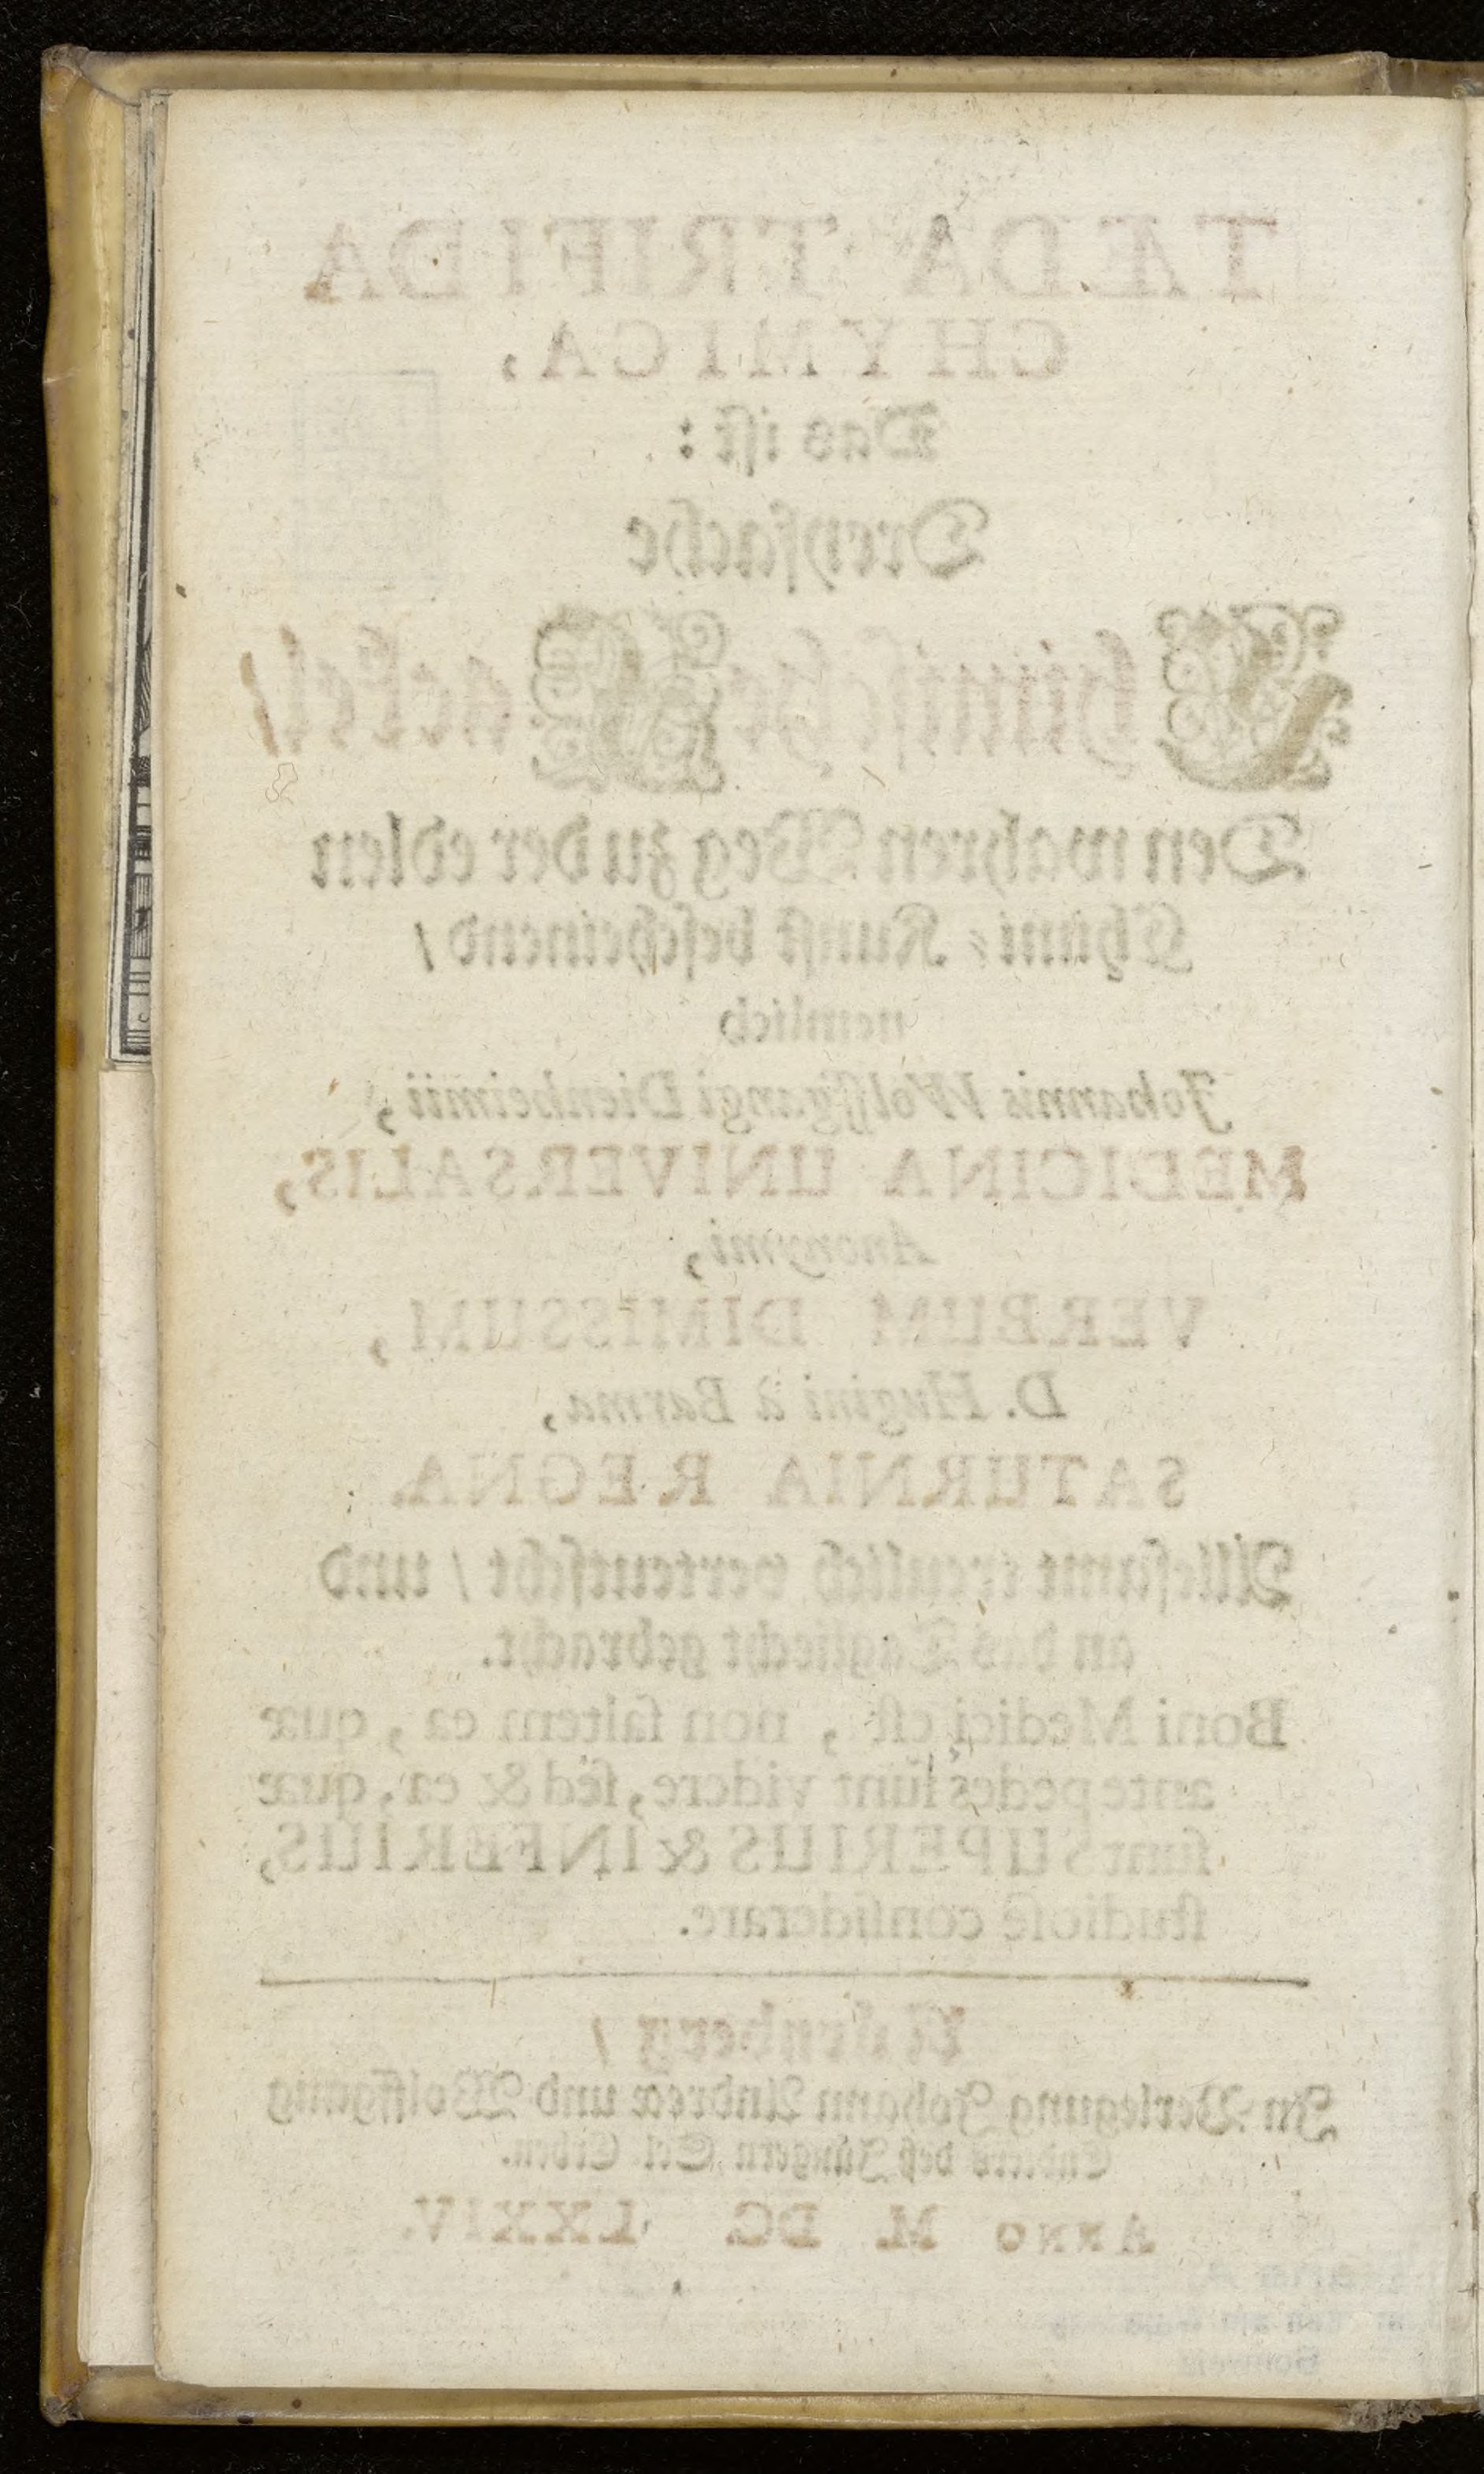 TÆDA TRIFIDA
CHYMICA,
Das ist:
Dreyfache
Chimische Fackel/
Den wahren Weg zu der edlen
Chimi-Kunst bescheinend/
nemlich
Johannis Wolffgangi Dienheimii,
MEDICINA UNIVERSALIS,
Anonymi,
VERBUM DIMISSUM,
D. Hugini à Barma,
SATURNIA REGNA.
Allesamt treulich verteutscht / und
an das Tagliecht gebracht.
Boni Medici est, non saltem ea, quæ
ante pedes sunt videre, sed & ea, quæ
sunt SUPERIUS & INFERIUS,
studiose considerare.
Nürnberg /
In Verlegung Johann Andreæ und Wolffgang
Endters deß Jüngern Sel. Erben.
ANNO M. DC. LXXIV.